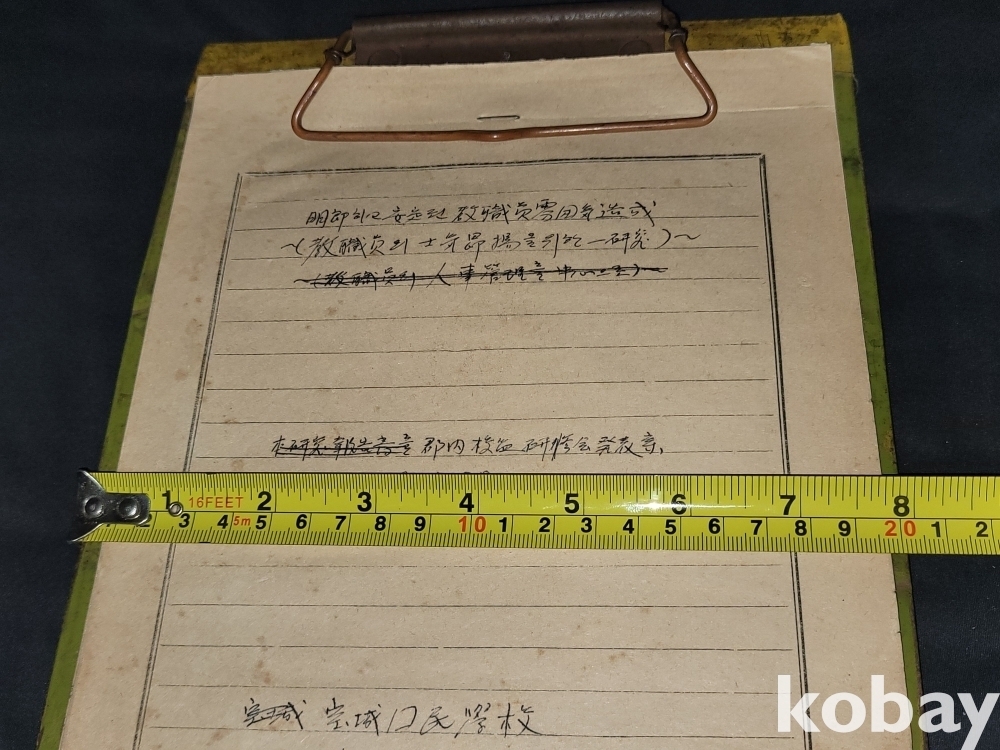 明朗하고 安定된 教職員 雰囲気 造成
~(教職員의 士気昂揚을 위한 一研究)~
~(教職員의 人事管理를 中心으로)~
本研究報告書를 郡内 研修会 発表
1 16FEET 2 3 4 5 6 7 8
2 3 4 5m 5 6 7 8 9 10 1 2 3 4 5 6 7 8 9 20 1 2
宝城 宝城国民學校
kobay